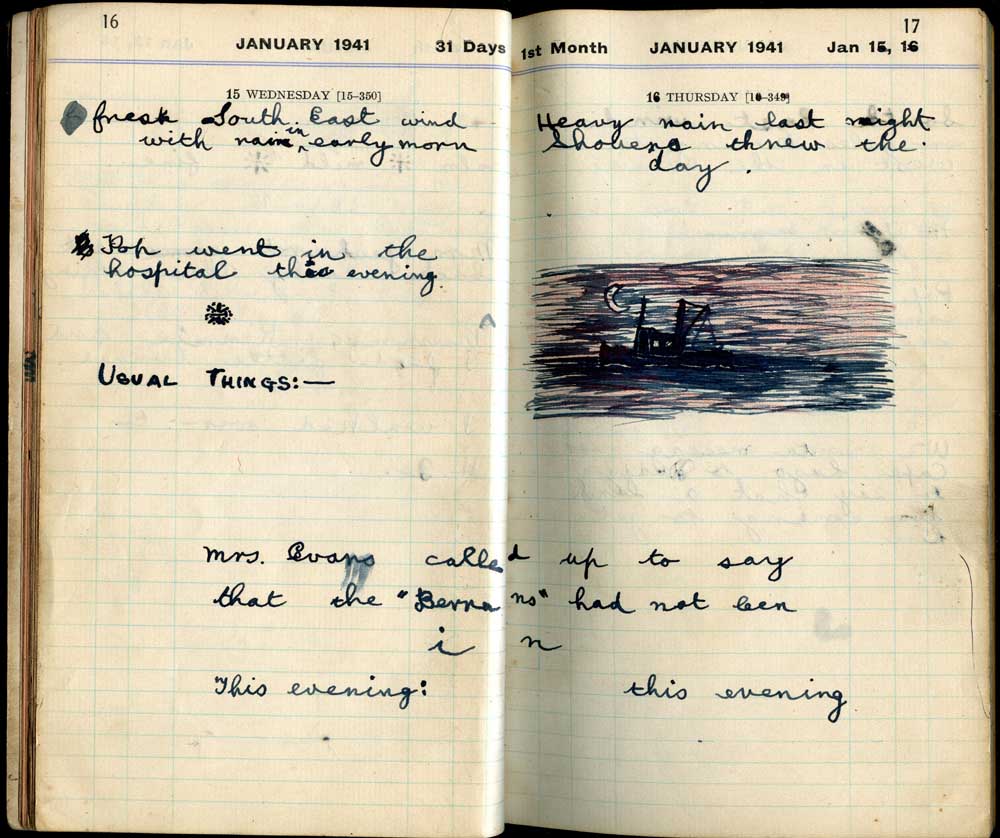 16
JANUARY 1941 31 Days
15 WEDNESDAY [15–350]
fresh South. East wind
with rain in early morn
Pop went in the
hospital this evening.
USUAL THINGS:—
17
1st Month JANUARY 1941 Jan 15, 16
16 THURSDAY [16–349]
Heavy rain last night
Showers threw the.
day.
Mrs. Evans called up to say
that the had not been
i n
This evening: this evening